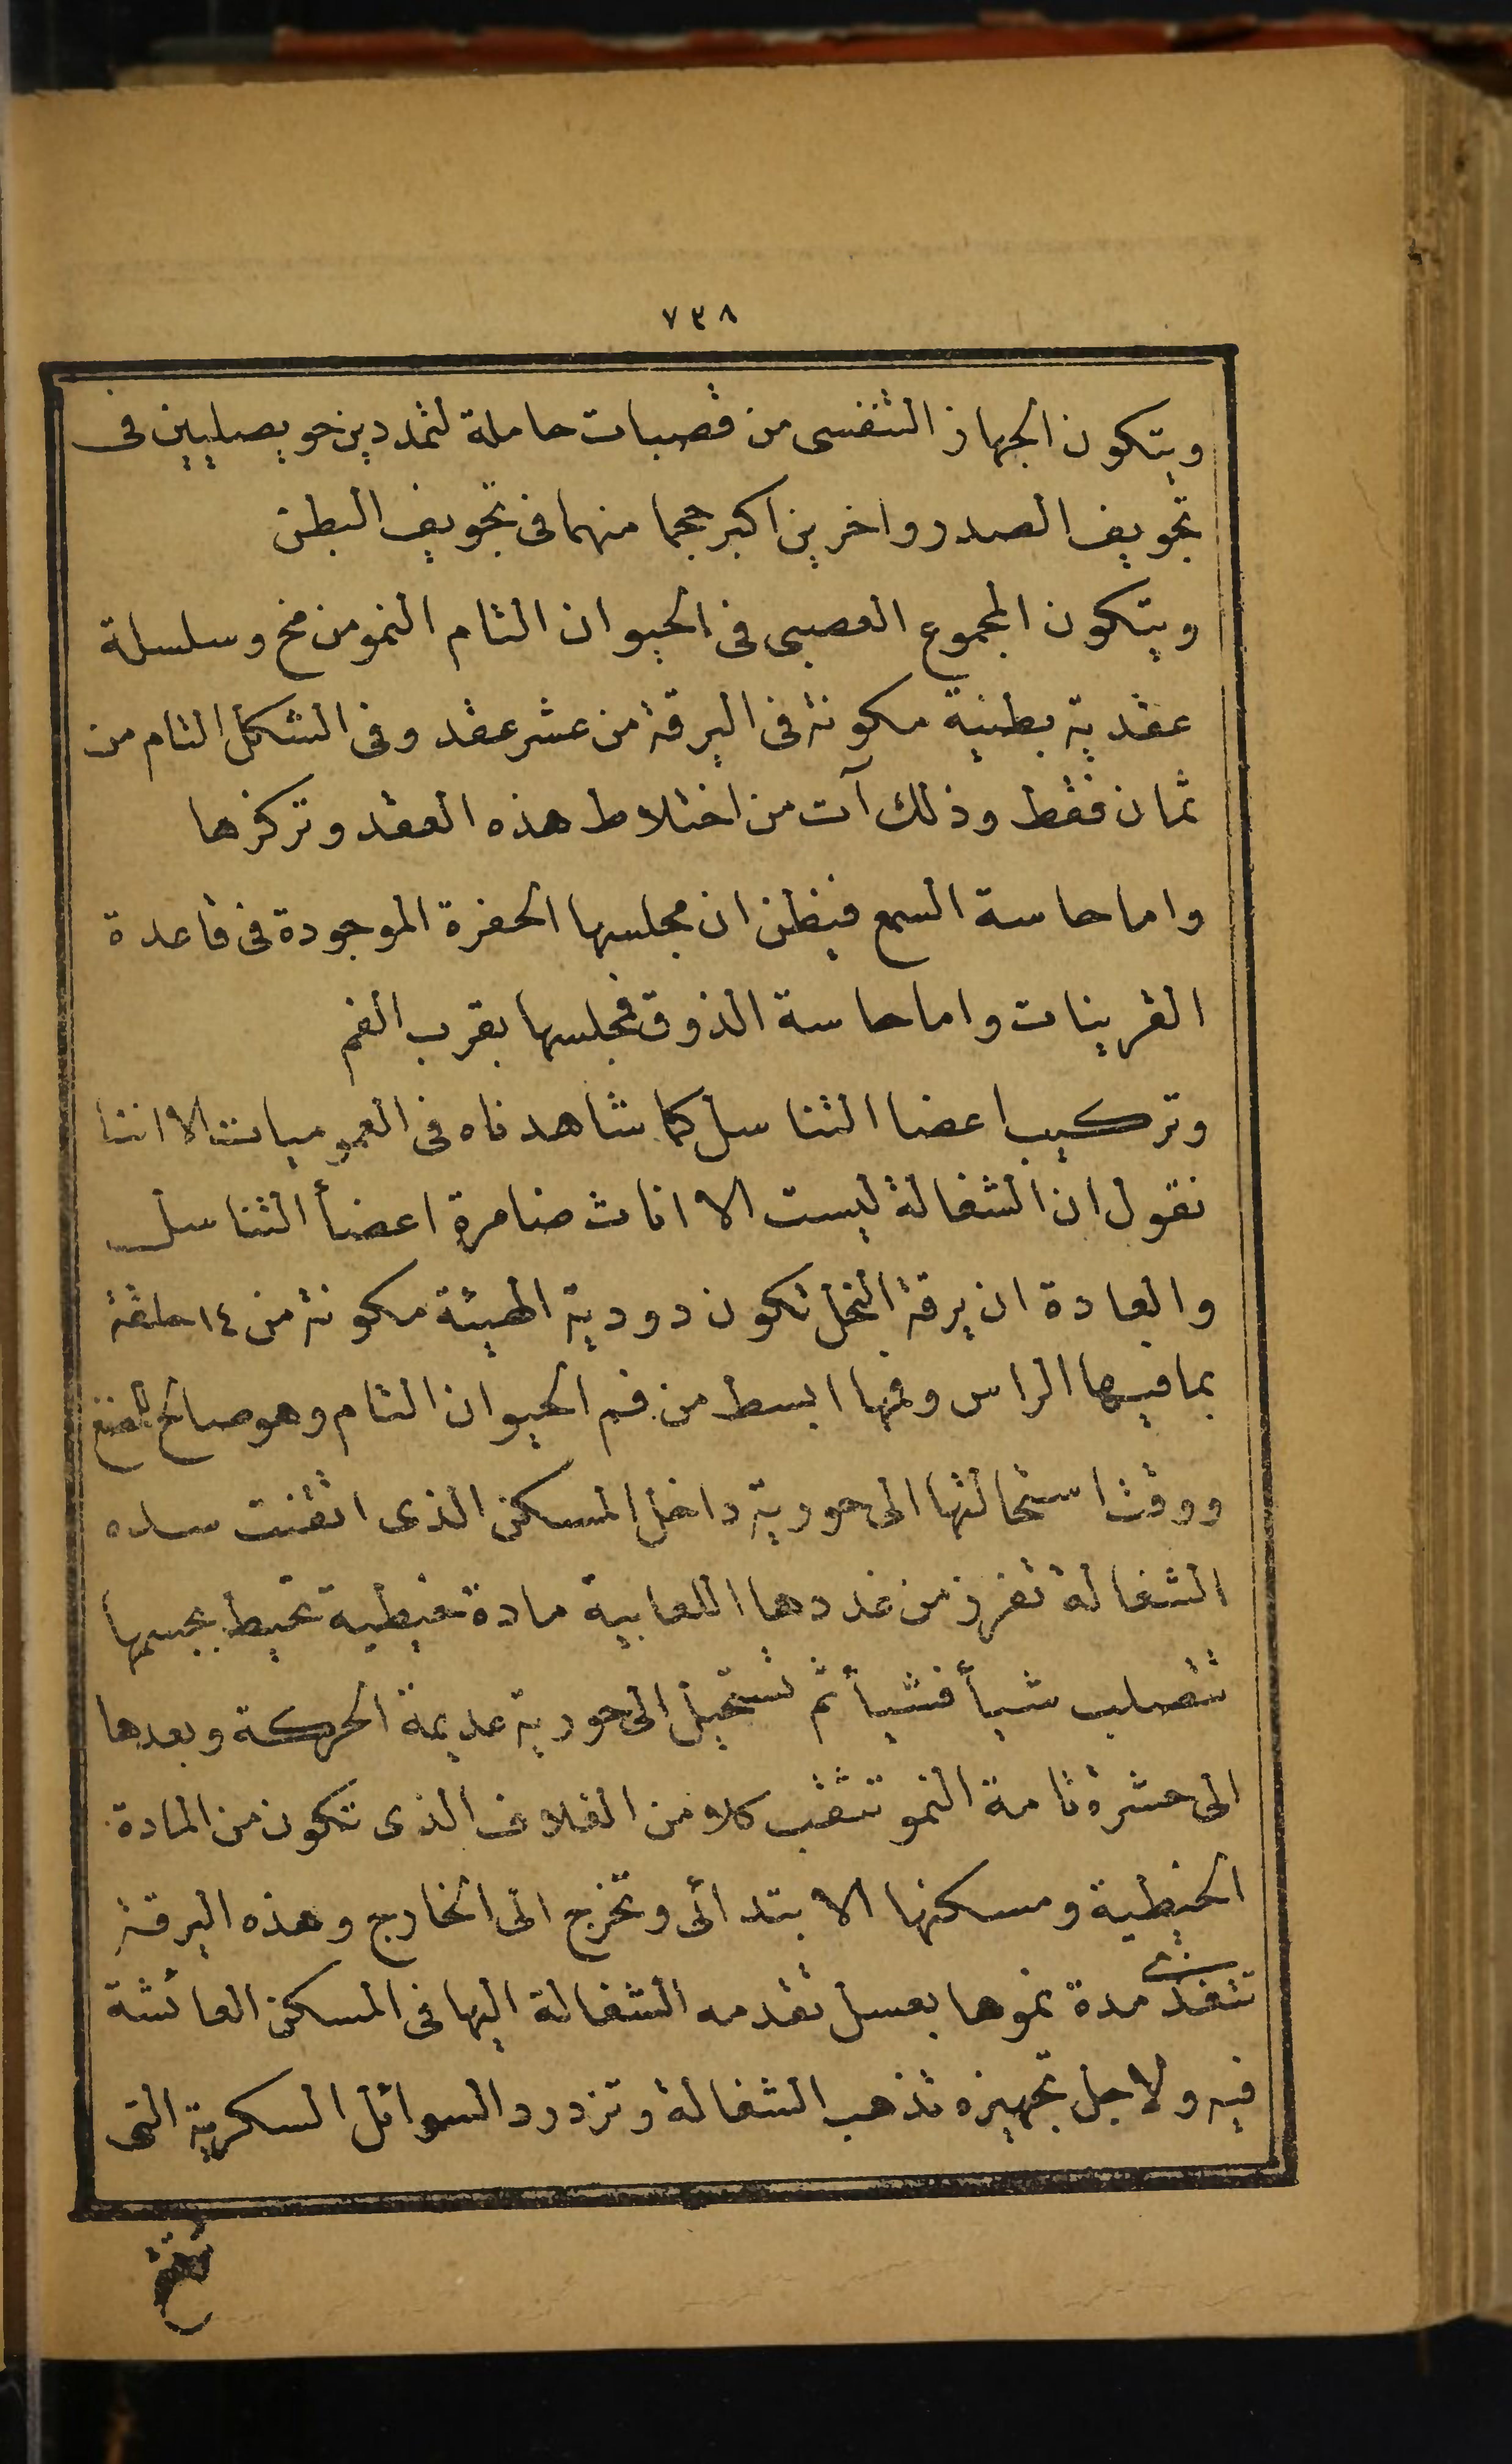 ٧٣٨
ويتكون الجهاز التنفسى من قصبات حاملة لتمددين حويصليين فى
تجويف الصدر واخرين اكبر حجما منهما فى تجويف البطن
ويتكون المجموع العصبى فى الحيوان التام النمو من مخ وسلسلة
عقدية بطنية مكونة فى اليرقة من عشر عقد وفى الشكل التام من
ثمان فقط وذلك آت من اختلاط هذه العقد وتركزها
واما حاسة السمع فيظن ان مجلسها الحفرة الموجودة فى قاعدة
القرينات واما حاسة الذوق فمجلسها بقرب الفم
وتركيب اعضا التناسل كما شاهدناه فى العموميات الا اننا
نقول ان الشغالة ليست الا اناث ضامرة اعضأ التناسل
والعادة ان يرقة النحل تكون دودية الهيئة مكونة من ١٤ حلقة
بما فيها الراس وفمها ابسط من فم الحيوان التام وهو صالح للمضغ
ووقت استحالتها الى حورية داخل المسكن الذى اتقنت سده
الشغالة تفرز من غددها اللعابية مادة خيطية تحيط بجسمها
تتصلب شيأ فشيأ ثم تستحيل الى حورية عديمة الحركة وبعدها
الى حشرة تامة النمو تثقب كلا من الغلاف الذى تتكون من المادة
الخيطية ومسكنها الابتدائى وتخرج الى الخارج وهذه اليرقة
تتغذى مدة نموها بعسل تقدمه الشغالة اليها فى المسكن العائشة
فيه ولاجل تجهيزه تذهب الشغالة وتزدرد السوائل السكرية التى